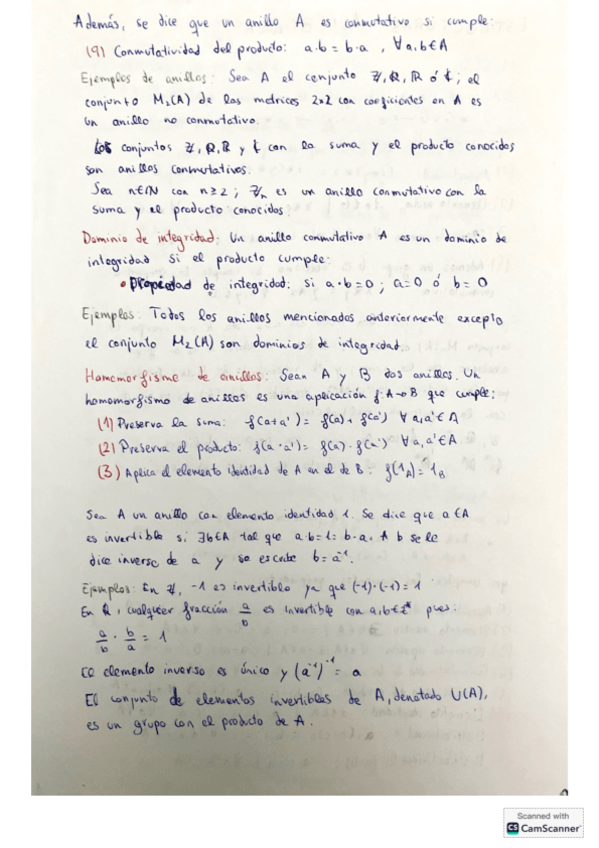 Además, se dice que un anillo A es conmutativo si cumple:
(9) Conmutatividad del producto: a·b = b·a , ∀a,b∈A
Ejemplos de anillos: Sea A el conjunto ℤ, ℚ, ℝ ó ℂ; el
conjunto M₂(A) de las matrices 2x2 con coeficientes en A es
un anillo no conmutativo.
Los conjuntos ℤ, ℚ, ℝ y ℂ con la suma y el producto conocidos
son anillos conmutativos.
Sea n∈ℕ con n≥2 ; ℤₙ es un anillo conmutativo con la
suma y el producto conocidos
Dominio de integridad: Un anillo conmutativo A es un dominio de
integridad si el producto cumple:
• Propiedad de integridad: si a·b=0 ; a=0 ó b=0
Ejemplos: Todos los anillos mencionados anteriormente excepto
el conjunto M₂(A) son dominios de integridad.
Homomorfismo de anillos: Sean A y B dos anillos. Un
homomorfismo de anillos es una aplicación f:A→B que cumple:
(1) Preserva la suma: f(a+a') = f(a) + f(a') ∀a,a'∈A
(2) Preserva el producto: f(a·a') = f(a)·f(a') ∀a,a'∈A
(3) Aplica el elemento identidad de A en el de B: f(1_A)=1_B
Sea A un anillo con elemento identidad 1. Se dice que a∈A
es invertible si ∃b∈A tal que a·b=1=b·a. A b se le
dice inverso de a y se escribe b=a⁻¹.
Ejemplos: En ℤ, -1 es invertible ya que (-1)·(-1)=1
En ℚ, cualquier fracción a/b es invertible con a,b∈ℤ* pues:
a/b · b/a = 1
El elemento inverso es único y (a⁻¹)⁻¹ = a
El conjunto de elementos invertibles de A, denotado U(A),
es un grupo con el producto de A.
Scanned with
CS CamScanner